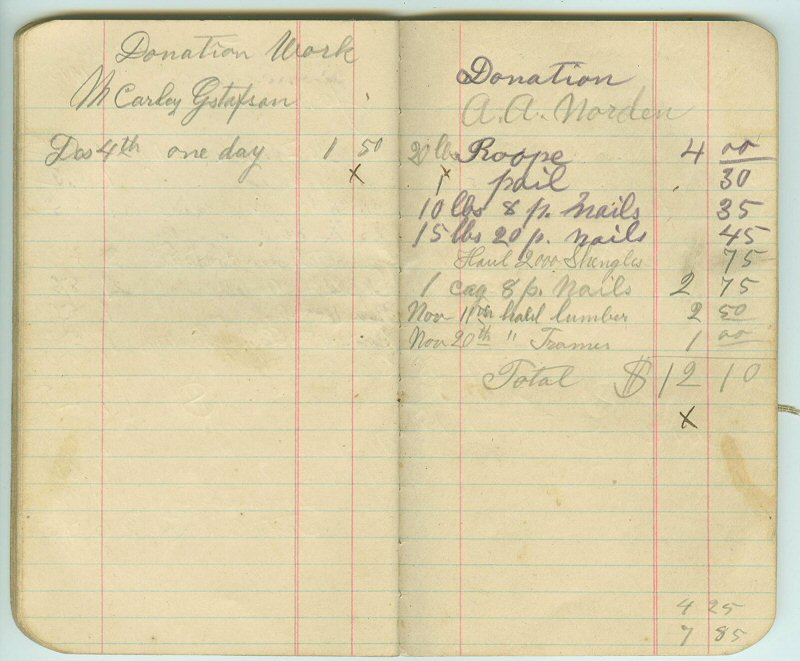 Donation Work
M Carley Gstafson
Des 4th one day 1 50
x
Donation
A. A. Norden
20 lbs Roope 4 00
1 pail 30
10 lbs 8 p. Nails 35
15 lbs 20 p. nails 45
Haul 2000 Shingles 75
1 cag 8 p. Nails 2 75
Nov 11 haul lumber 2 50
Nov 20th " Frames 1 00
Total $12 10
x
4 25
7 85